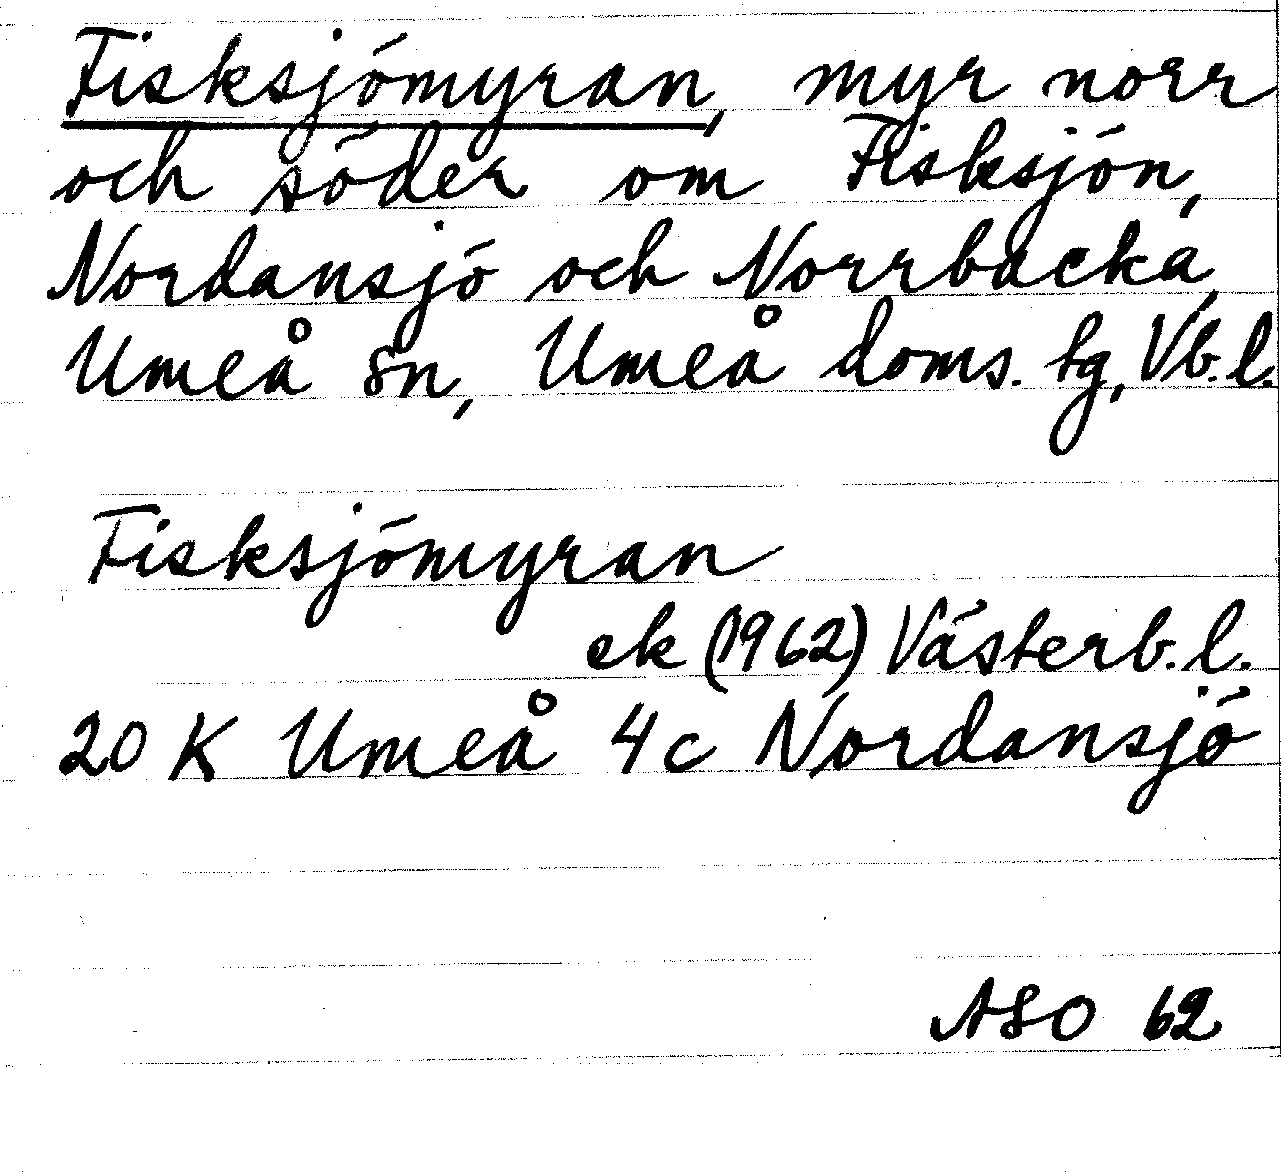 Fisksjömyran, myr norr
och söder om Fisksjön,
Nordansjö och Norrbacka,
Umeå sn, Umeå doms. tg, Vb. l.
Fisksjömyran
ek (1962) Västerb. l.
20 K Umeå 4c Nordansjö
ASO 62